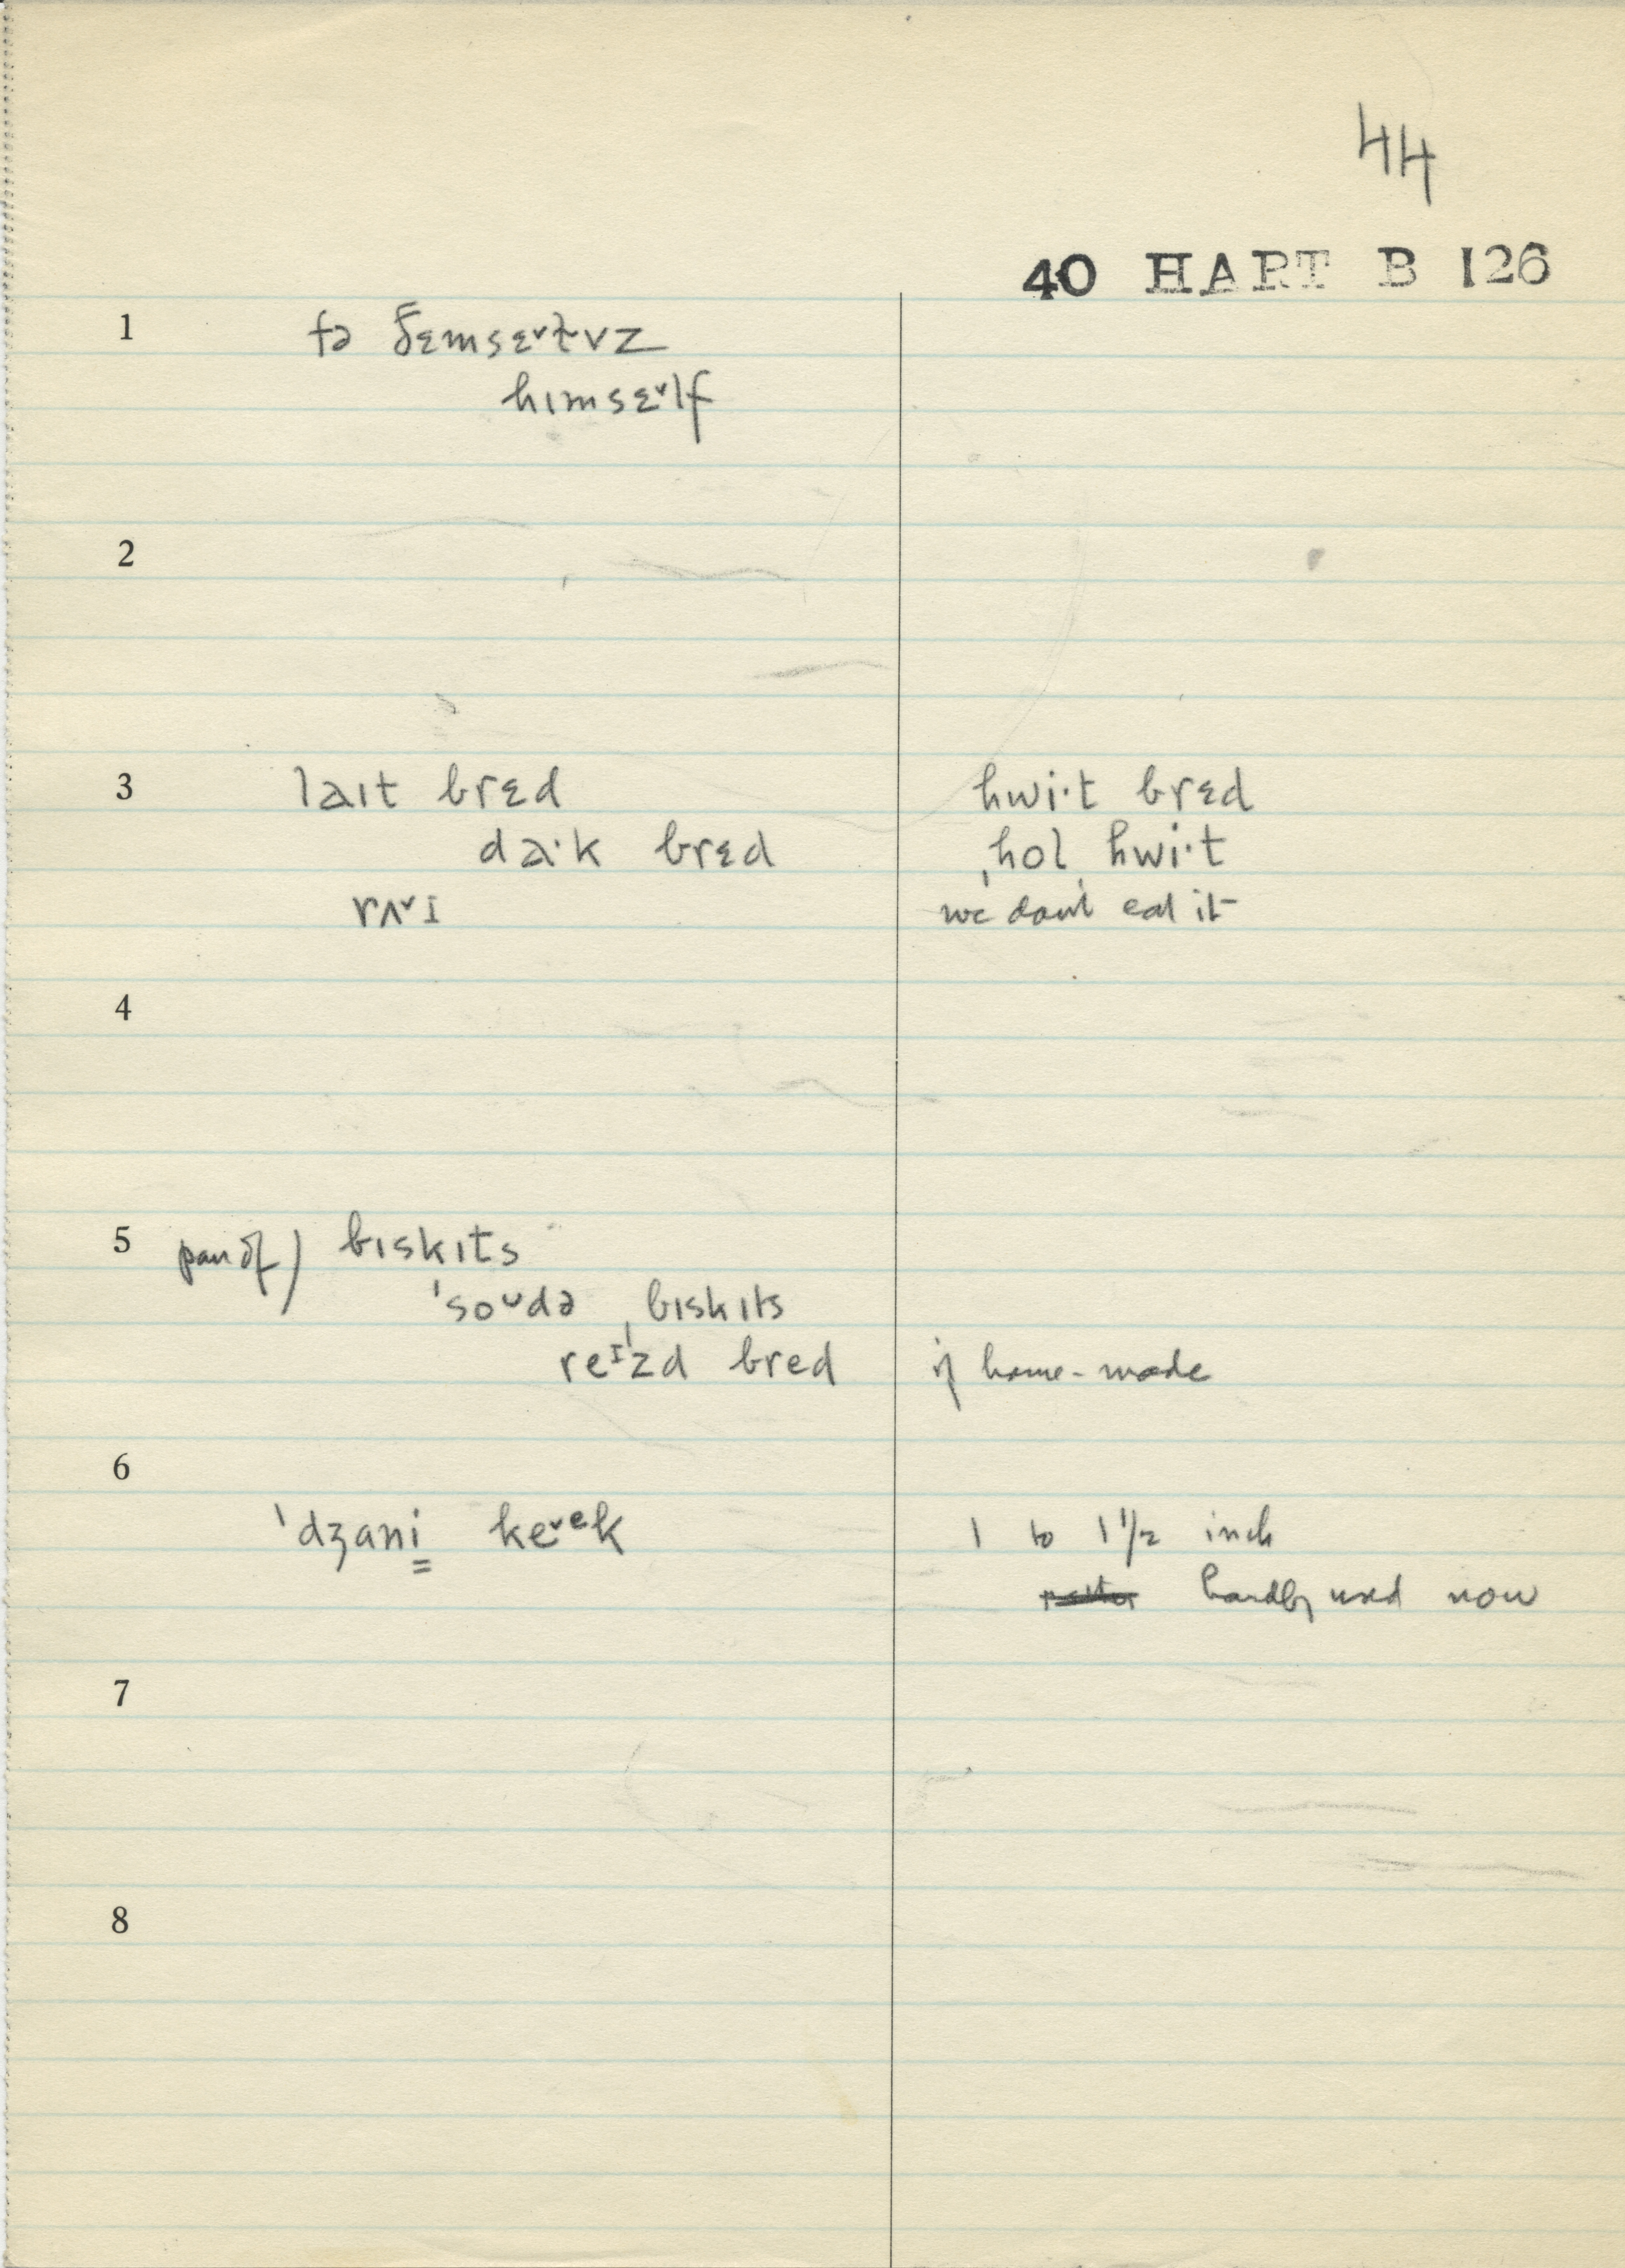 44
40 HART B 126
1 tə ðɛmsɛ˅ɫvz
hɪmsɛ˅lf
2
3 laɪt brɛd hwi·t brɛd
da·k brɛd ˌhol ˌhwi·t
rʌ˅ɪ we don't eat it
4
5 pan of) bɪskɪts
ˈsoᶷdə ˌbɪskɪts
reᶦzd bred if home-made
6
ˈdʒani ke˅ᵉk 1 to 1 1/2 inch
hardly used now
7
8